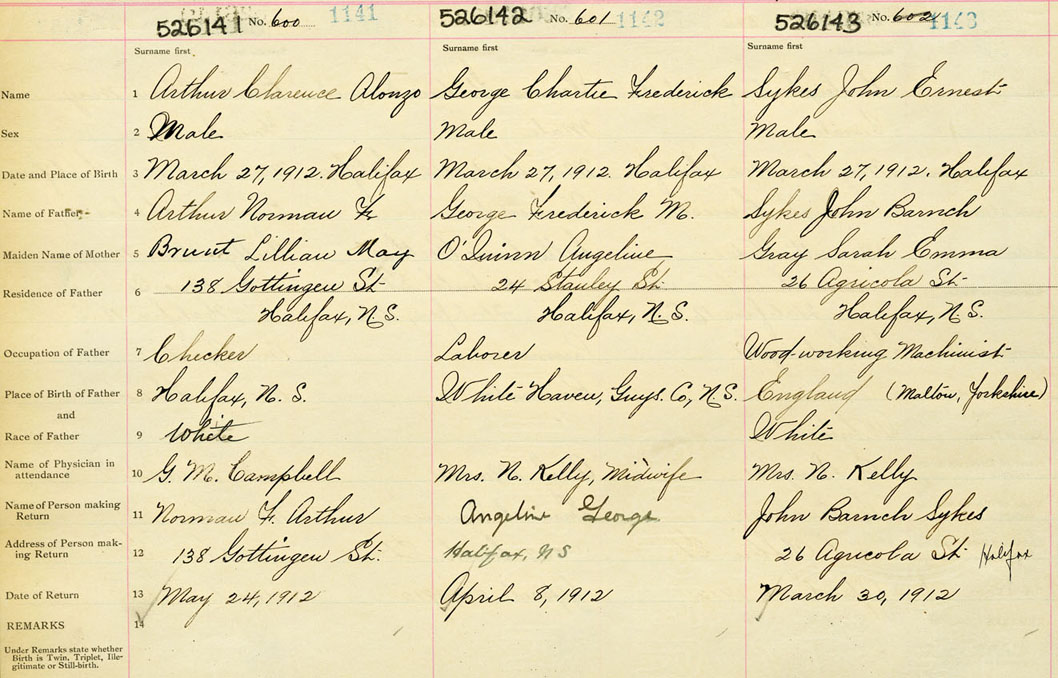 526141 No. 600 1141 526142 No. 601 1142 526143 No. 602 1143
Surname first Surname first Surname first
Name 1 Arthur Clarence Alonzo George Charlie Frederick Sykes John Ernest
Sex 2 Male Male Male
Date and Place of Birth 3 March 27, 1912. Halifax March 27, 1912. Halifax March 27, 1912. Halifax
Name of Father 4 Arthur Norman F. George Frederick M. Sykes John Baruch
Maiden Name of Mother 5 Brunt Lillian May O'Quinn Angeline Gray Sarah Emma
Residence of Father 6 138 Gottingen St. 24 Stanley St. 26 Agricola St.
Halifax, N.S. Halifax, N.S. Halifax, N.S.
Occupation of Father 7 Checker Laborer Wood-working Machinist
Place of Birth of Father 8 Halifax, N.S. White Haven, Guys. Co, N.S. England (Malton, Yorkshire)
and
Race of Father 9 White White
Name of Physician in attendance 10 G. M. Campbell Mrs. N. Kelly, Midwife Mrs. N. Kelly
Name of Person making Return 11 Norman F. Arthur Angeline George John Baruch Sykes
Address of Person mak-ing Return 12 138 Gottingen St. Halifax, NS 26 Agricola St. Halifax
Date of Return 13 May 24, 1912 April 8, 1912 March 30, 1912
REMARKS 14
Under Remarks state whether
Birth is Twin, Triplet, Ille-
gitimate or Still-birth.